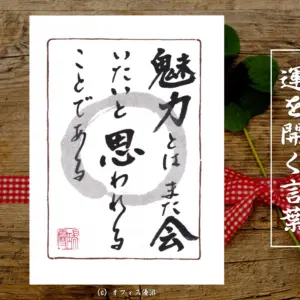 魅力とは また会
いたいと思われる
ことである
運を開く言葉
(c) オフィス優游